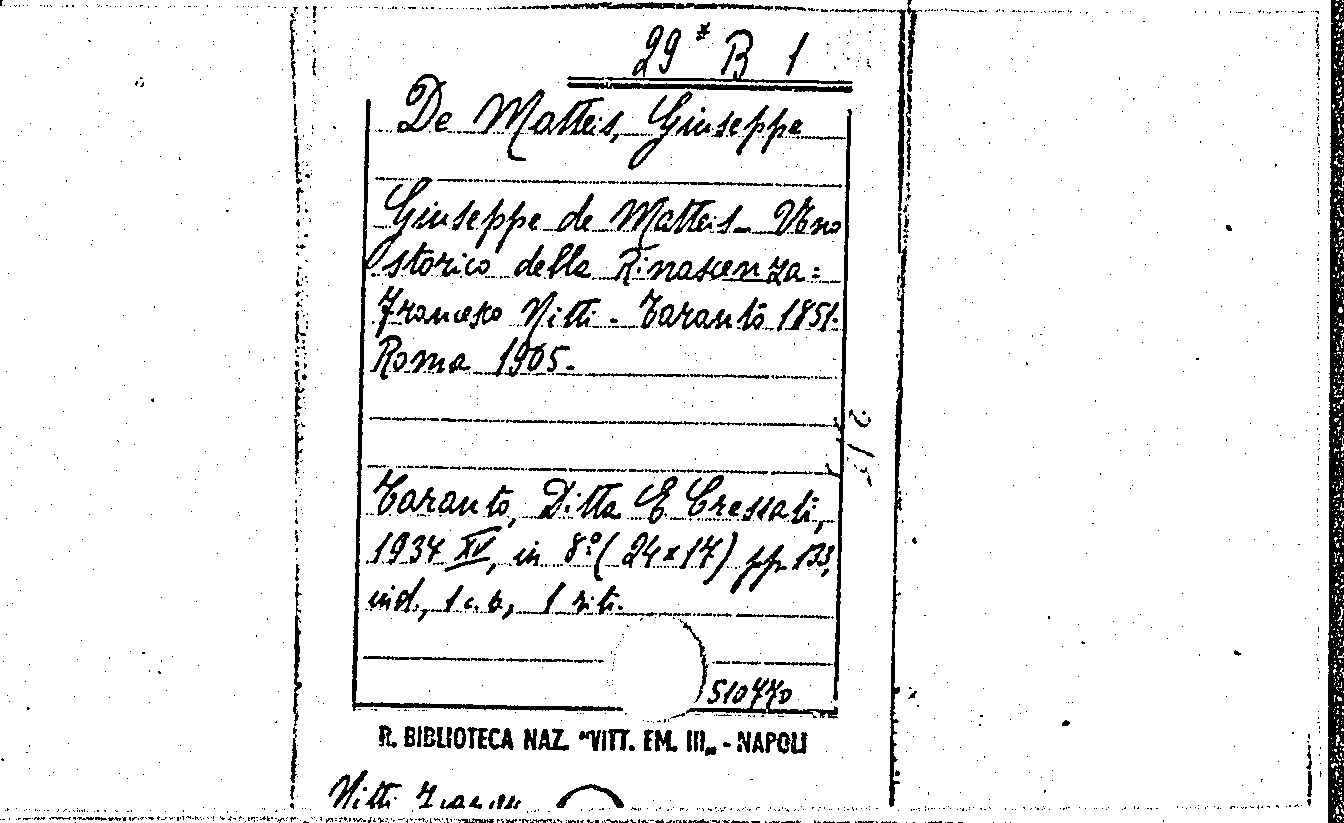 29* B 1
De Matteis, Giuseppe
Giuseppe de Matteis - Uno
storico della Rinascenza:
Francesco Nitti - Taranto 1851.
Roma 1905.
Taranto, Ditta E Cressati,
1937 XV, in 8° (24x17) pp 133,
ind., 1 c. b., 1 rit.
510770
R. BIBLIOTECA NAZ. "VITT. EM. III„ - NAPOLI
Nitti